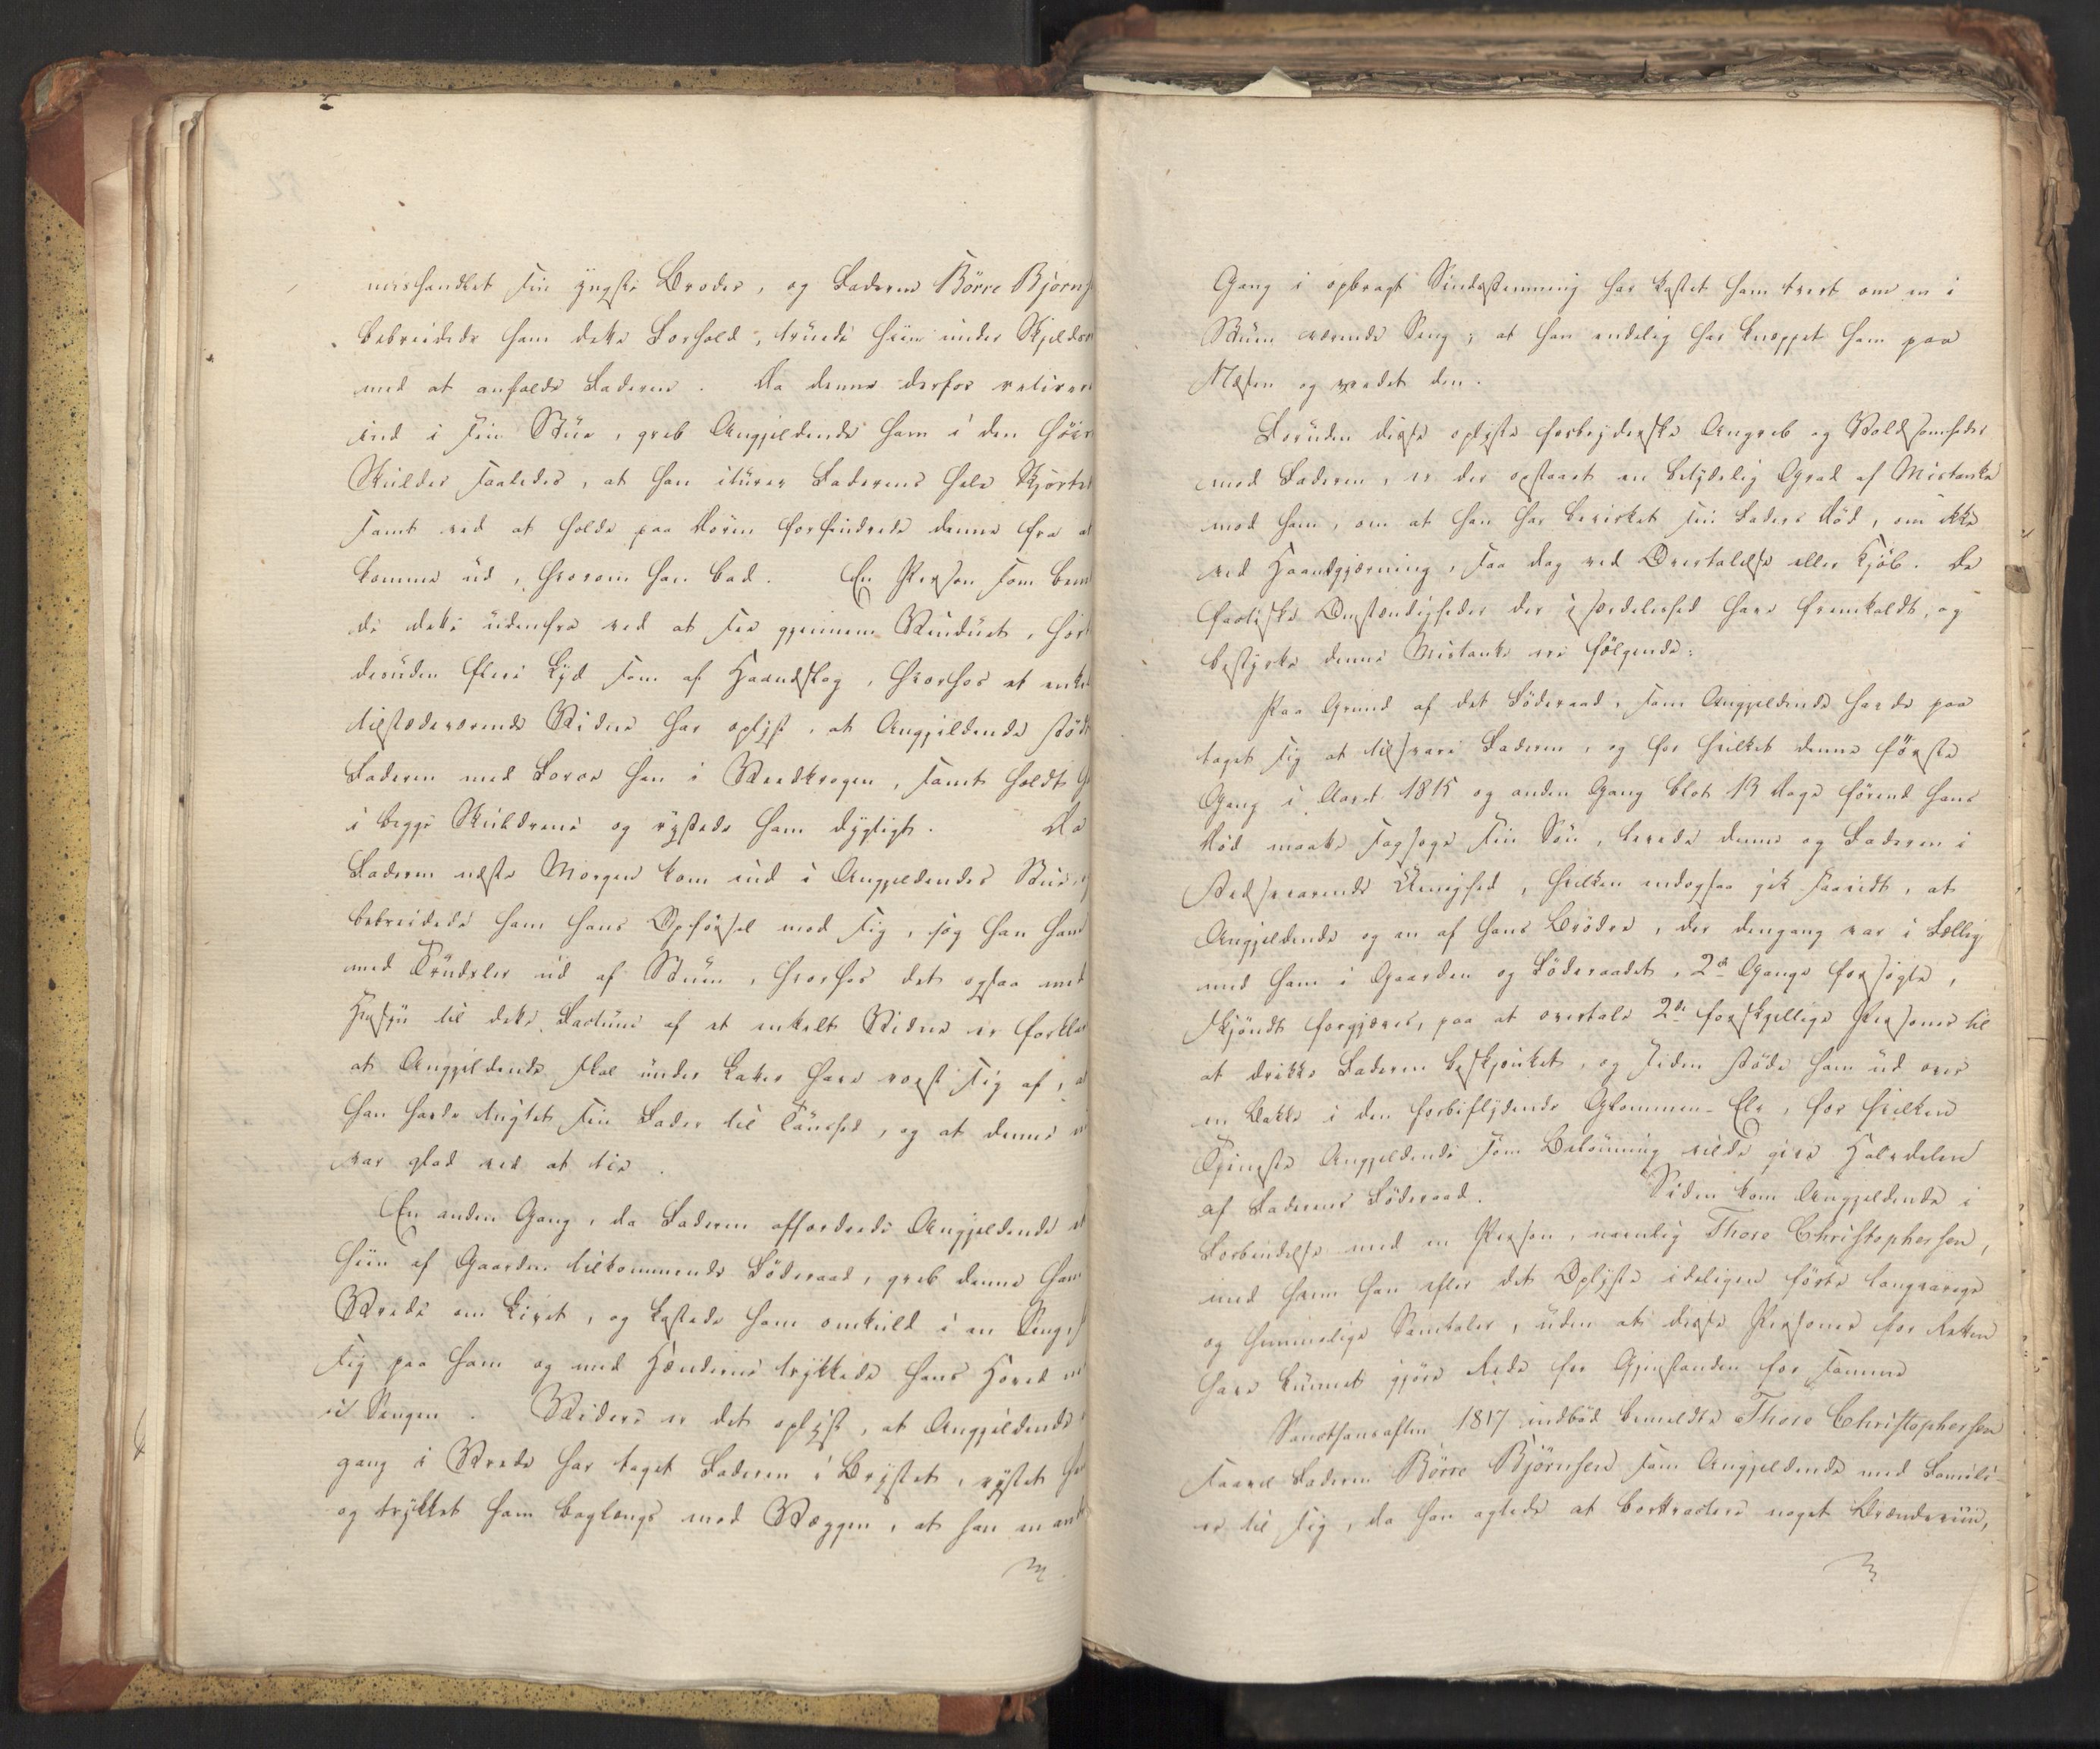 mishandlet sin yngste Broder, og Faderen Börre Björns
bebreidede ham dette Forhold, truede hiin under Skjelds
med at anfalde Faderen. Da denne derfor retirere
ind i sin Stue, greb Angjeldende ham i den höire
Skulder saaledes, at han iturev Faderens hele Skjorte
samt ved at holde paa Dören forhindrede denne fra at
komme ud, hvorom han bad. En Person som bem
de dette udenfra ved at see gjennem Vinduet, hört
desuden flere Lyd som af Haandslag, hvorhos et enkel
tilstedeværende Vidne har oplyst, at Angjeldende stödt
Faderen med Force hen i Vraakrogen, samt holdt h
i begge Skuldrene og rystede ham dygtigt. Da
Faderen næste Morgen kom ind i Angjeldendes Stue, og
bebreidede ham hans Opförsel mod sig, jog han ham
med Trudsler ud af Stuen, hvorhos det ogsaa med
Hensyn til dette Factum af et enkelt Vidne er forkla
at Angjeldende skal under Latter have roest sig af, at
han havde tugtet sin Fader til Taushed, og at denne n
var glad ved at tie.
En anden Gang, da Faderen affordrede Angjeldende et
hiin af Gaarden tilkommende Föderaad, greb denne ham
Vrede om Livet, og kastede ham omkuld i en Seng, s
sig paa ham og med Hænderne trykkede hans Hoved ne
i Sengen. Videre er det oplyst, at Angjeldende
gang i Vrede har taget Faderen i Brystet, rystet ha
og trykket ham baglengs mod Væggen, at han en and
Gang i opbragt Sindsstemning har kastet ham tvert om en i
Stuen værende Seng; at han endelig har knappet ham paa
Næsen og vredet den.
Foruden disse oplyste forbryderske Angreb og Voldsomheder
mod Faderen, er der opstaaet en betydelig Grad af Mistanke
mod ham, om at han har bevirket sin Faders Död, om ikke
ved Haandgjærning, saa dog ved Overtalelse eller Kjöb. De
factiske Omstændigheder der i særdeleshed have fremkaldt, og
bestyrke denne Mistanke ere fölgende:
Paa Grund af det Föderaad, som Angjeldende havde paa
taget sig at tilsvare Faderen, og for hvilket denne förste
Gang i Aaret 1815 og anden Gang blot 13 Dage förend hans
Död maatte sagsöge sin Sön, levede denne og Faderen i
stedsevarende Ueenighed, hvilken endogsaa gik saavidt, at
Angjeldende og en af hans Brödre, der dengang var i Fællig
med ham i Gaarden og Föderaadet, 2de Gange forsögte,
skjöndt forgjæves, paa at overtale 2de forskjellige Personer til
at drikke Faderen beskjenket, og siden stöde ham ud over
en Bakke i den forbiflydende Glommen-Elv, for hvilken
Tjeneste Angjeldende som Belönning vilde give Halvdelen
af Faderens Föderaad. Siden kom Angjeldende i
Forbindelse med en Person, navnlig Thore Christophersen,
med hvem han efter det Oplyste ideligen förte langvarige
og hemmelige Samtaler, uden at disse Personer for Retten
have kunnet gjöre Rede for Gjenstanden for samme
Sancthansaften 1817 indböd bemeldte Thore Christophersen
saavel Faderen Börre Björnsen som Angjeldende med Famili-
er til sig, da han agtede at borttractere noget Brændeviin,